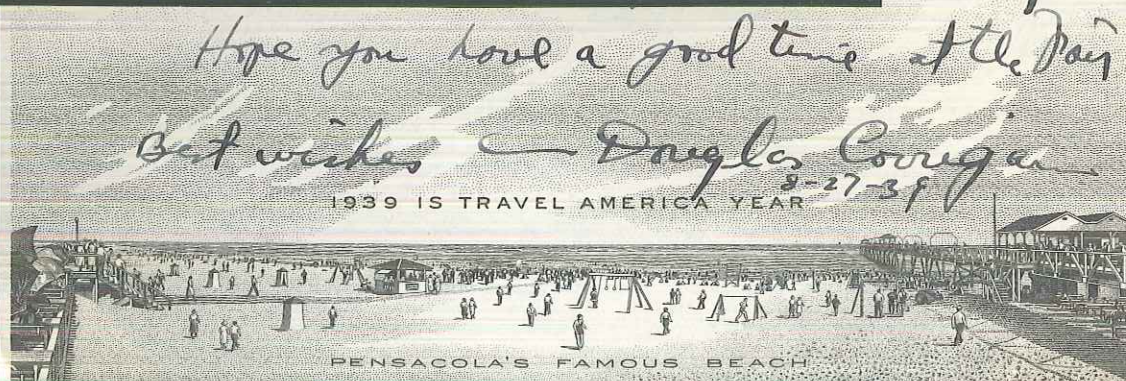 Hope you have a good time at the Fair
Best wishes — Douglas Corrigan
8-27-39
1939 IS TRAVEL AMERICA YEAR
PENSACOLA'S FAMOUS BEACH